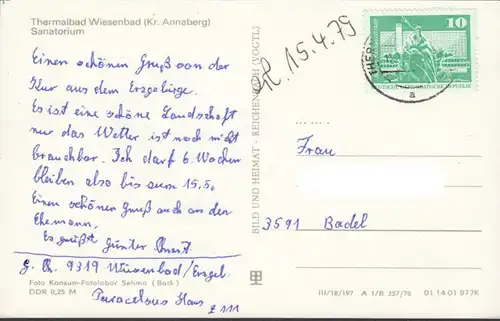 Thermalbad Wiesenbad (Kr. Annaberg)
Sanatorium
Einen schönen Gruß von der
Kur aus dem Erzgebirge.
Es ist eine schöne Landschaft
nur das Wetter ist noch nicht
brauchbar. Ich darf 6 Wochen
bleiben also bis zum 15.5.
Einen schönen Gruß auch an den
Ehemann.
Es grüßt Günter
9319 Wiesenbad/Erzgeb.
Paracelsus Haus Z 111
Foto Konsum-Fotolabor Selima (Bach)
DDR 0,25 M
BILD UND HEIMAT - REICHENBACH (VOGTL)
15.4.79
10
DEUTSCHE DEMOKRATISCHE REPUBLIK
a
Frau
3591 Badel
III/18/197 A 1/B 357/78 01 14 01 977K